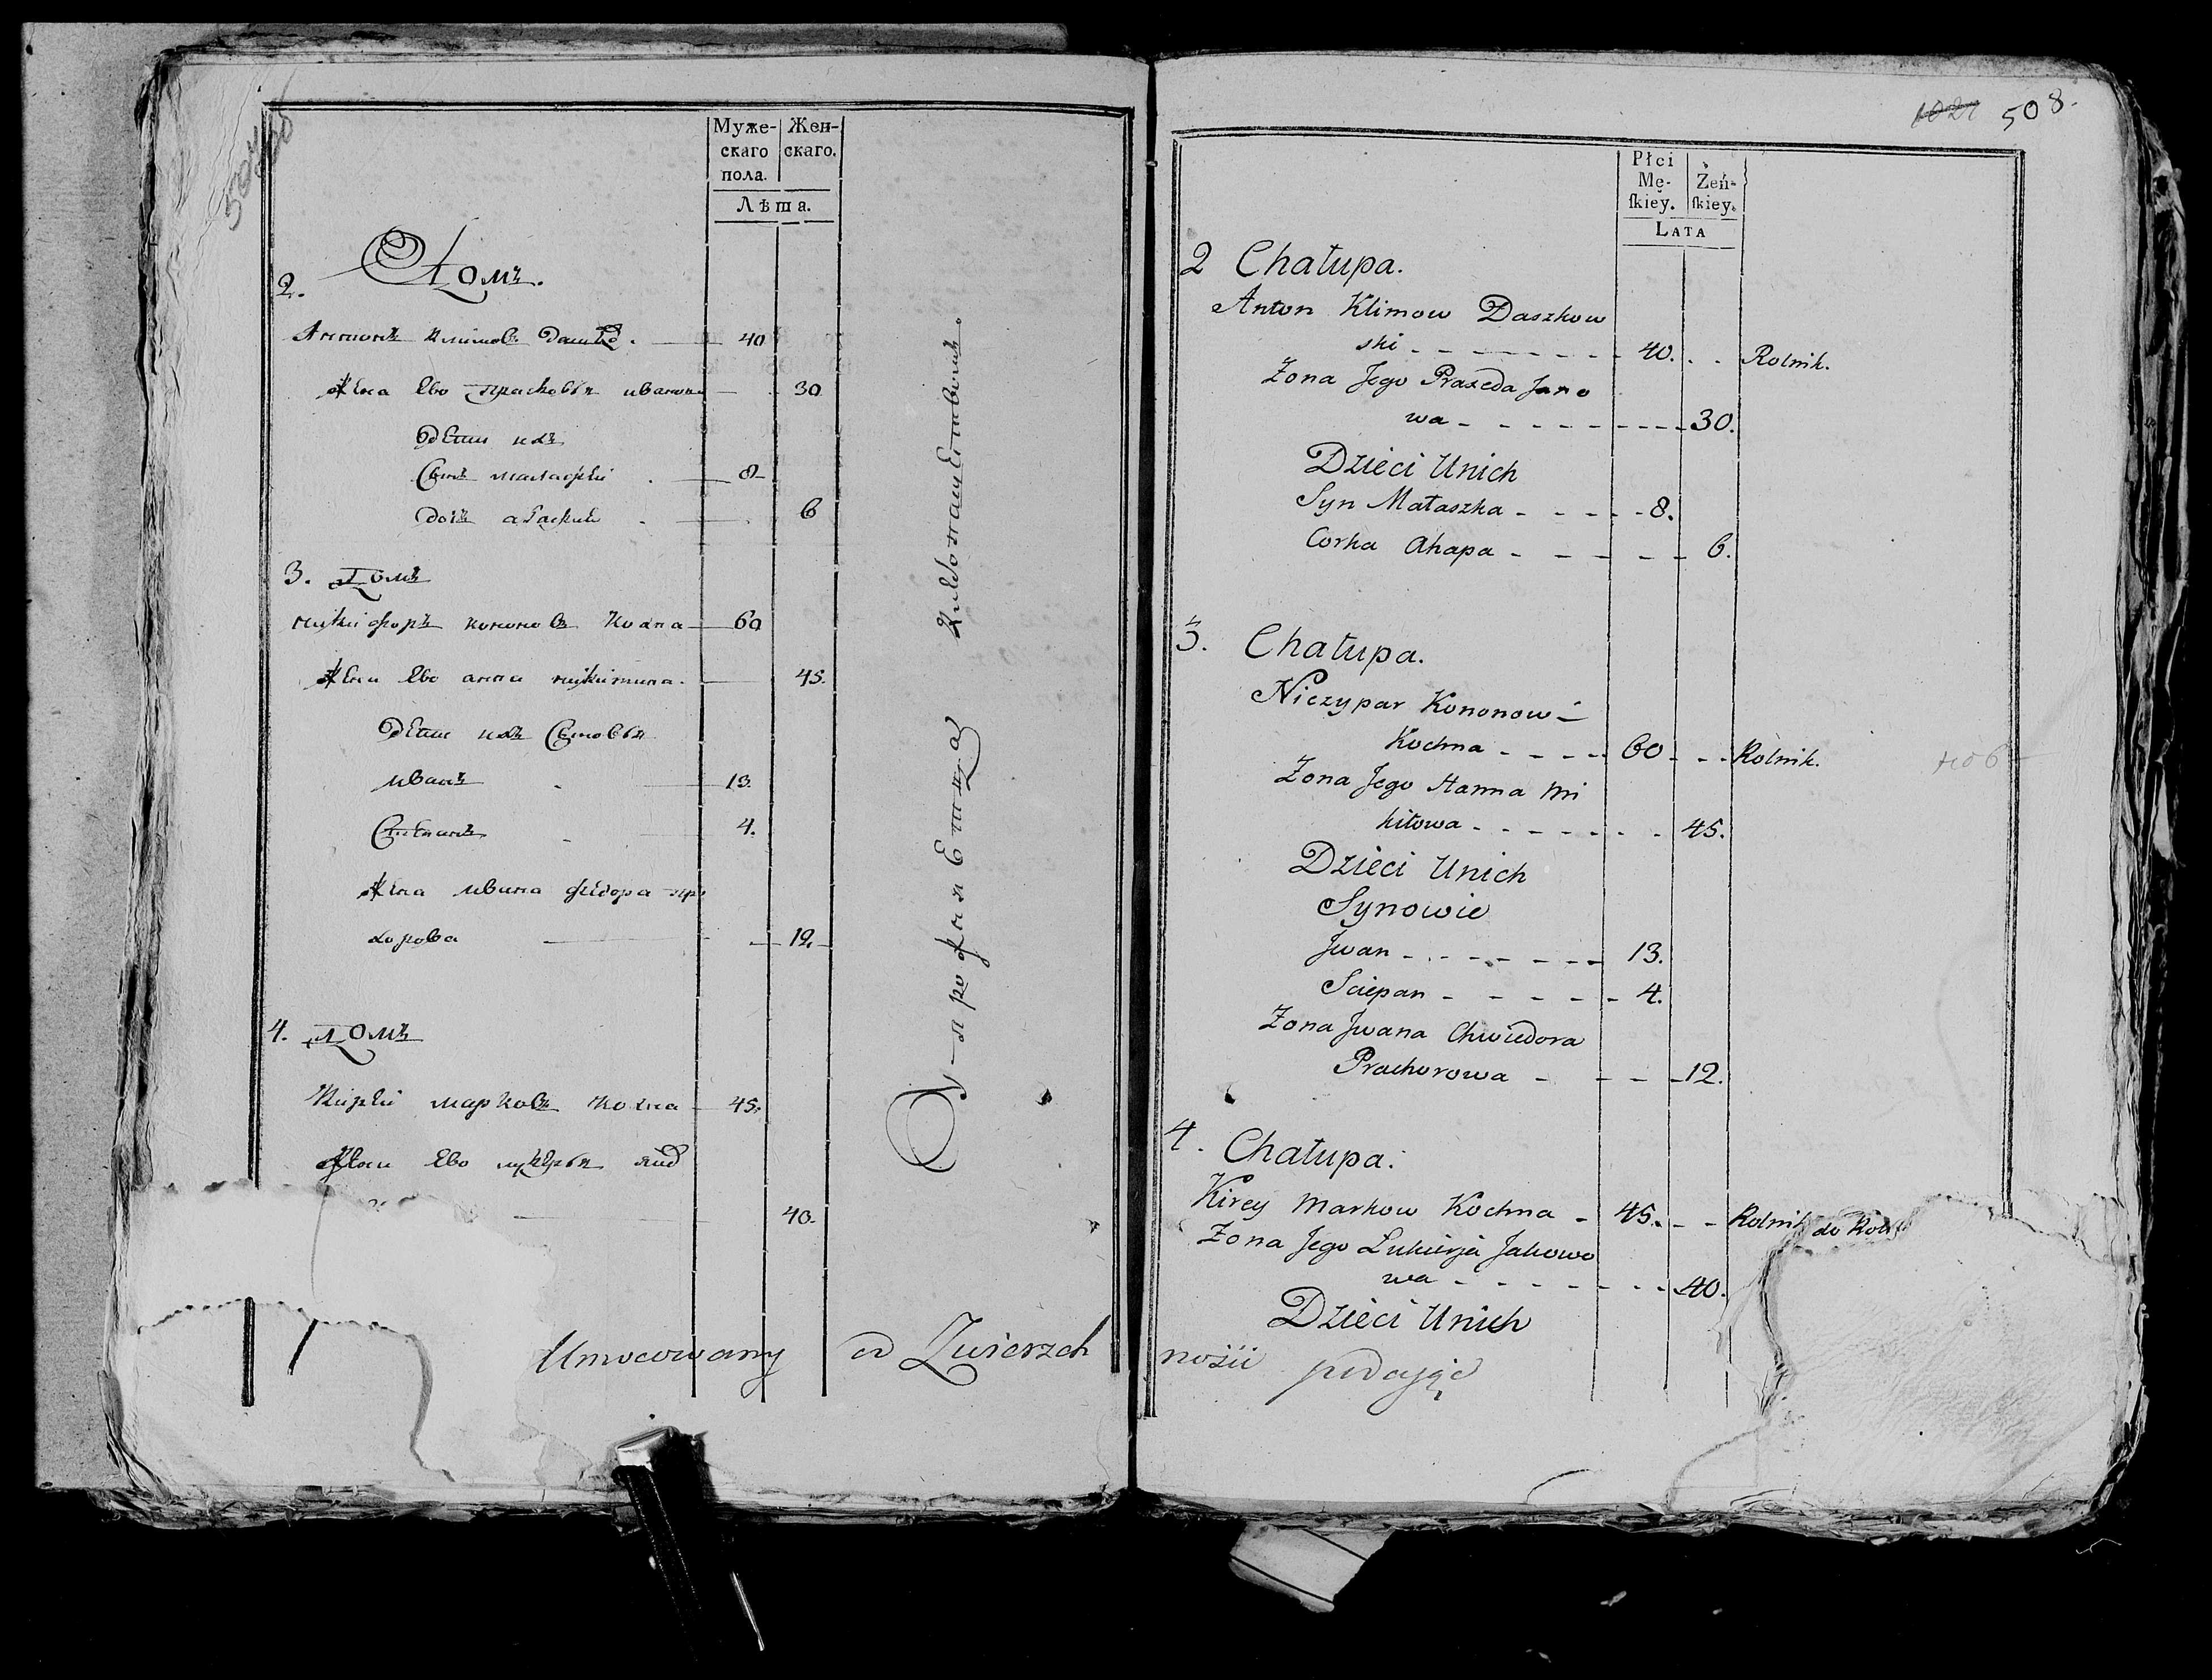 Муже-
скаго
пола.
Жен-
скаго.
Лѣта.
2. Домъ.
Антонъ климовъ 40
Жена Ево прасковья 30
дети ихъ
Сынъ 8
дочь 6
3. Домъ
никифоръ кононовъ 60
Жена Ево анна никитина 45.
дети ихъ Сыновья
иванъ 13.
Степанъ 4.
Жена ивана федора про
хорова 12
4. Домъ
Кирей марковъ 45.
Жена Ево лукерья
40.
Umocowany od Zwierzch
508.
Płci
Mę-
ſkiey.
Żeń-
ſkiey.
LATA
2 Chałupa.
Anton Klimow Daszkow
ski 40. Rolnik.
Zona Jego Praxeda Jano
wa 30.
Dzieci Unich
Syn Małaszka 8.
Corka Ahapa 6.
3. Chałupa.
Niczypar Kononow
Kochna 60 Rolnik.
Zona Jego Hanna Mi
kitowa 45.
Dzieci Unich
Synowie
Jwan 13.
Sciepan 4.
Zona Jwana Chwiedora
Prachorowa 12.
4. Chałupa.
Kirey Markow Kochna 45. Rolnik do
Zona Jego Lukierja Jakowo
wa 40.
Dzieci Unich
nośii podając